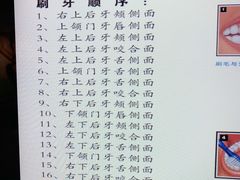 刷牙顺序：
1、右上后牙颊侧面
2、上颌门牙唇侧面
3、左上后牙颊侧面
4、左上后牙咬合面
5、左上后牙舌侧面
6、上颌门牙舌侧面
7、右上后牙舌侧面
8、右上后牙咬合面
9、右下后牙颊侧面
10、下颌门牙唇侧面
11、左下后牙颊侧面
12、左下后牙咬合面
13、左下后牙舌侧面
14、下颌门牙舌侧面
15、右下后牙舌侧面
16、右下后牙咬合面
1
刷毛与
4